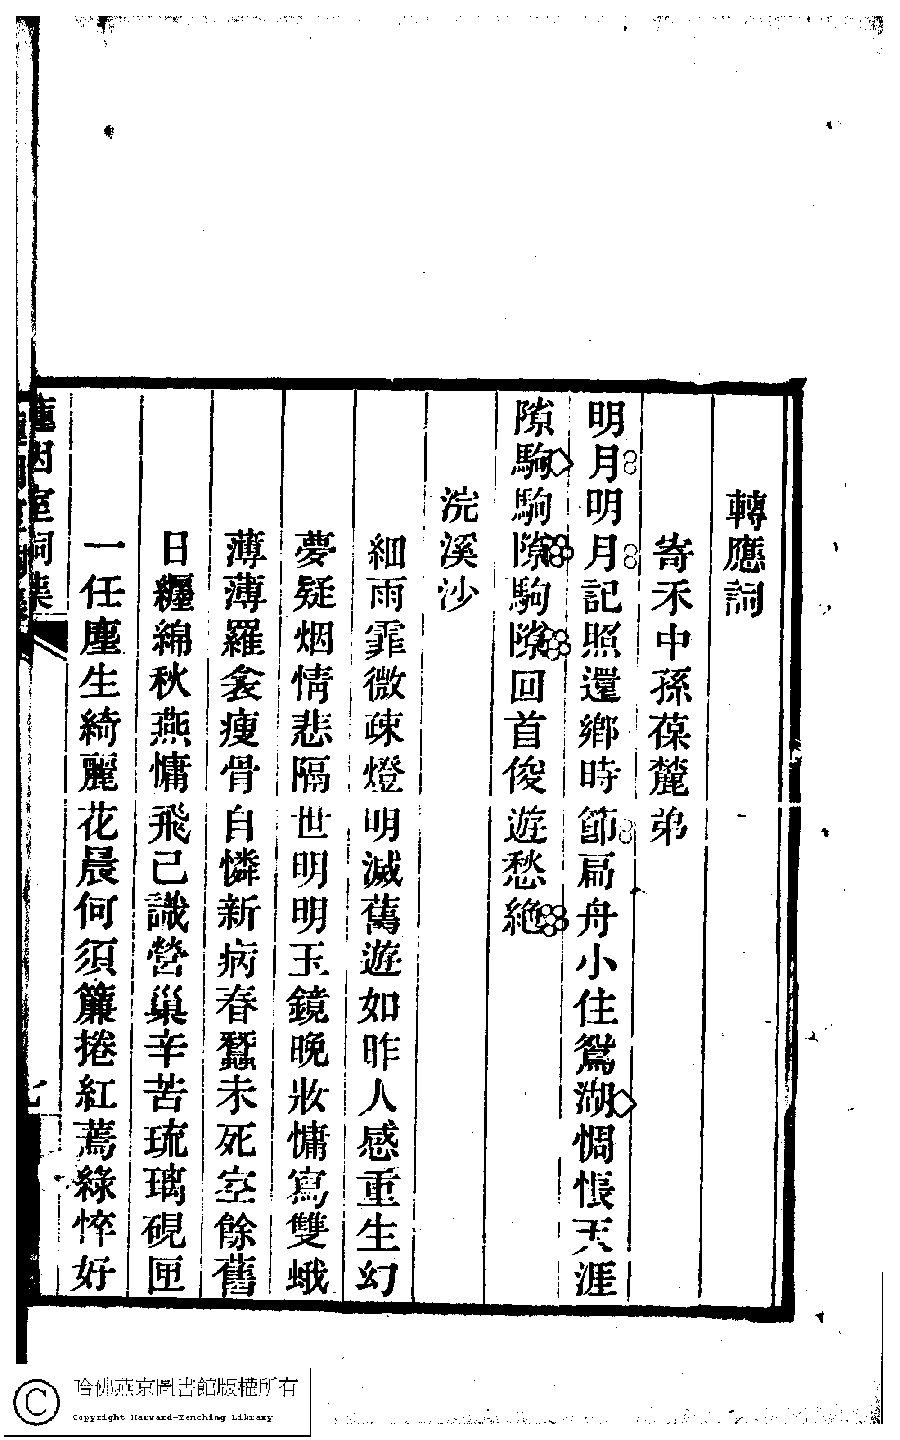 轉應詞
寄禾中孫葆麓弟
明月明月記照還鄉時節扁舟小住鴛湖惆悵天涯
隙駒駒隙駒隙回首俊遊愁絶
浣溪沙
細雨霏微疎燈明滅舊遊如昨人感重生幻
夢疑烟情悲隔世明明玉鏡晚妝慵寫雙蛾
薄薄羅衾瘦骨自憐新病春蠶未死空餘舊
日纒綿秋燕慵飛已識營巢辛苦琉璃硯匣
一任塵生綺麗花晨何須簾捲紅蔫綠悴好
因室詞集
七
哈佛燕京圖書館版權所有
Copyright Harvard-Yenching Library